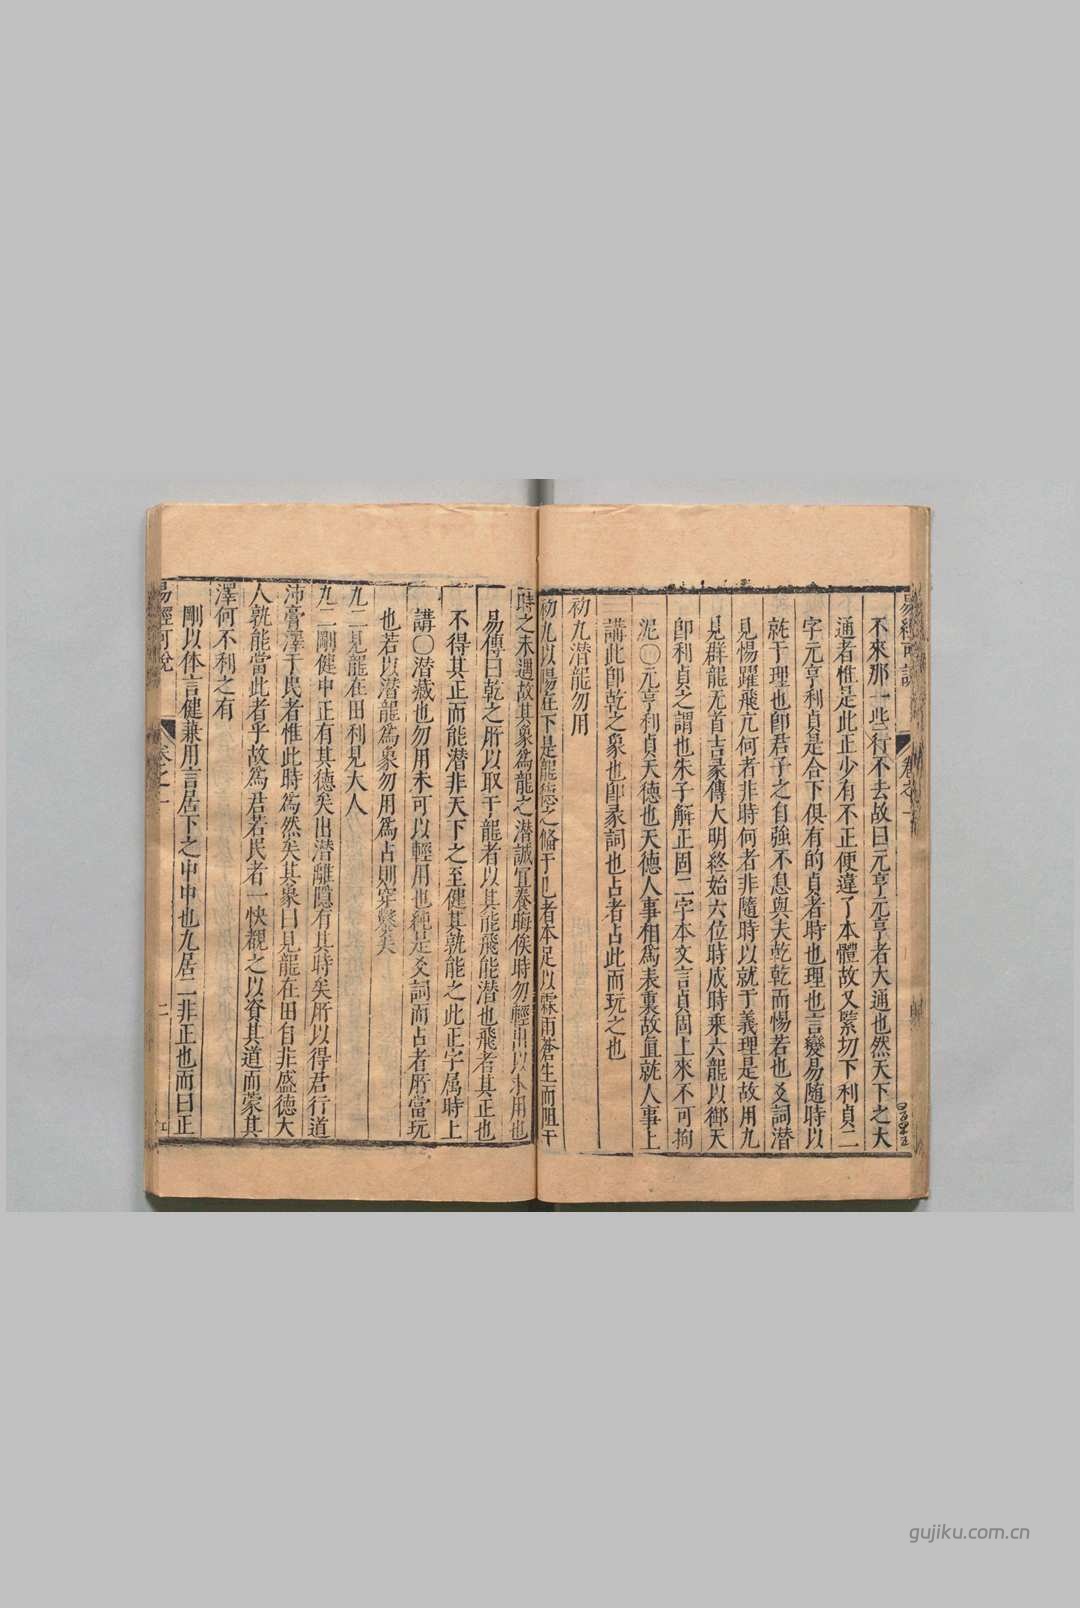 易經可說
卷之一
不來那一些行不去故曰元亨元亨者大通也然天下之大
通者惟是此正少有不正便違了本體故又緊切下利貞二
字元亨利貞是合下俱有的貞者時也理也言變易随時以
就于理也卽君子之自強不息與夫乾乾而惕若也爻詞潜
見惕躍飛亢何者非時何者非隨時以就于義理是故用九
見群龍无首吉彖傳大明終始六位時成時乗六龍以御天
卽利貞之謂也朱子解正固二字本文言貞固上來不可拘
泥〇元亨利貞天德也天德人事相爲表裏故直就人事上
講此卽乾之象也卽彖詞也占者占此而玩之也
初九潜龍勿用
初九以陽在下是龍德之脩于已者本足以霖雨蒼生而阻于
時之未遇故其象爲龍之潜誠宜養晦俟時勿輕出以求用也
易傳曰乾之所以取于龍者以其能飛能潜也飛者其正也
不得其正而能潜非天下之至健其孰能之此正字属時上
講〇潜藏也勿用未可以輕用也純是爻詞而占者所當玩
也若以潜龍爲象勿用爲占則穿鑿矣
九二見龍在田利見大人
九二剛健中正有其德矣出潜離隱有其時矣所以得君行道
沛膏澤于民者惟此時爲然矣其象曰見龍在田自非盛德大
人孰能當此者乎故爲君若民者一快覩之以資其道而蒙其
澤何不利之有
剛以体言健兼用言居下之中中也九居二非正也而曰正
易經可說
卷之一
二
gujiku.com.cn